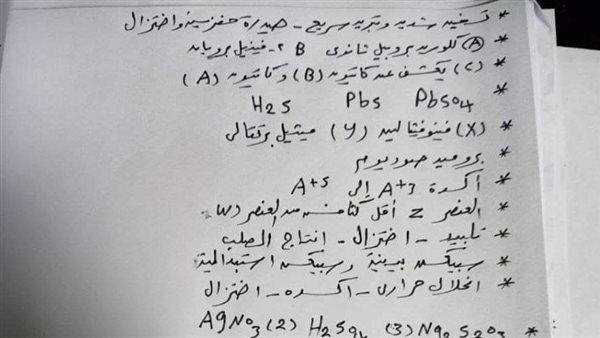 * تسخين شديد وتبريد سريع - هيدرة حفزية واختزال
* (A) كلوريد بروبيل ثانوى B ٢- فينيل بروبان
* (C) يكشف عن كاتيون (B) وكاتيون (A)
* H2S PbS PbSO4
* (X) فينولفثالين (y) ميثيل برتقالى
* بروميد صوديوم
* أكسدة A+3 إلى A+5
* العنصر Z أقل كثافة من العنصر W
* تلبيد - اختزال - انتاج الصلب
* سبيكة بينية وسبيكة استبدالية
* انحلال حرارى - اكسدة - اختزال
* AgNO3 (2) H2SO4 (3) Na2S2O3